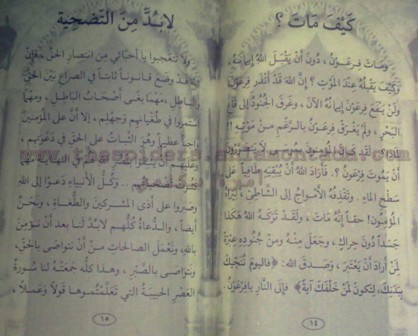 كَيْفَ مَاتَ ؟
وَمَاتَ فِرعَوْنُ ، دُونَ أَنْ يَقْبَلَ اللهُ إيمَانَهُ ،
وَكَيْفَ يَقْبَلُهُ عِنْدَ المَوْتِ ؟ إنَّ اللهَ قَدْ أَنْذَرَ فِرْعَوْنَ
وَلَنْ يَنْفَعَ فِرعَوْنَ إيمانُهُ الآنَ ، وَغَرِقَ الجُنُودُ إلى قَاعِ
البَحْرِ ، ولَمْ يَغْرَقْ فِرعَوْنُ بالرَّغْمِ مِنْ مَوْتِهِ !!
لقد كانَ المؤمنونَ لا يُصَدِّقُونَ
أَنْ يَمُوتَ فِرْعَوْنُ ؟ فَأَرَادَ اللهُ أَنْ يُبْقِيَهُ طَافِياً عَلَى
سَطْحِ المَاءِ . وَتَقْذِفُهُ الأَمْوَاجُ إلى الشَّاطِئِ ، لِيَرَاهُ
المُؤْمِنُونَ ! حَقاً إنَّهُ مَاتَ ، وَلَقَدْ تَرَكَهُ اللهُ هَكَذَا
جَسَداً دُونَ حِرَاكٍ ، وَجَعَلَ مِنْهُ وَمِنْ جُنُودِهِ عِبْرَةً
لِمَنْ أَرَادَ أَنْ يَعْتَبِرَ ، وَصَدَقَ اللهُ: ﴿فَاليَوْمَ نُنَجِّيكَ
بِبَدَنِكَ، لِتَكُونَ لِمَنْ خَلْفَكَ آيَةً﴾ فإلى النَّارِ يا فِرْعَوْنُ .
١٤
لابُدَّ مِنَ التَّضْحِيَةِ
ولا تَتَعَجَّبوا يا أحبَّائي مِنِ انتصارِ الحَقِّ ، فإنَّ
وَضَعَ قانوناً ثابتاً في الصراعِ بَيْنَ الحَقِّ
والباطلِ ، مَهْمَا بَغَى أَصْحَابُ البَاطِلِ ، ومَهْمَا
اسْتَمروا في طُغْيانِهِمْ وجَهْلِهِمْ ، إلا أَنَّ عَلَى المؤمنينَ
واجباً عظيماً وَهوَ الثباتُ عَلَى الحَقِّ في دَعْوَتِهِمْ ،
.. وكُلُّ الأنبياءِ دَعَوْا إلى اللهِ
وصَبَروا على أذى المشركينَ والطُّغاةِ ، ونَحْنُ
أيضاً ، والدُّعاةُ كُلُّهُمْ لابُدَّ لَنا بعدَ أنْ نُؤْمِنَ
باللهِ ، ونَعْمَلَ الصالحاتِ مِنْ أنْ نتواصَى بالحَقِّ ،
ونتواصَى بالصَّبْرِ ، وهذا كلُّهُ جَمَعَتْهُ لنا سُورَةُ
العَصْرِ الحبيبةُ التي تعَلَّمْتُموها قولاً وعَمَلاً ،
١٥